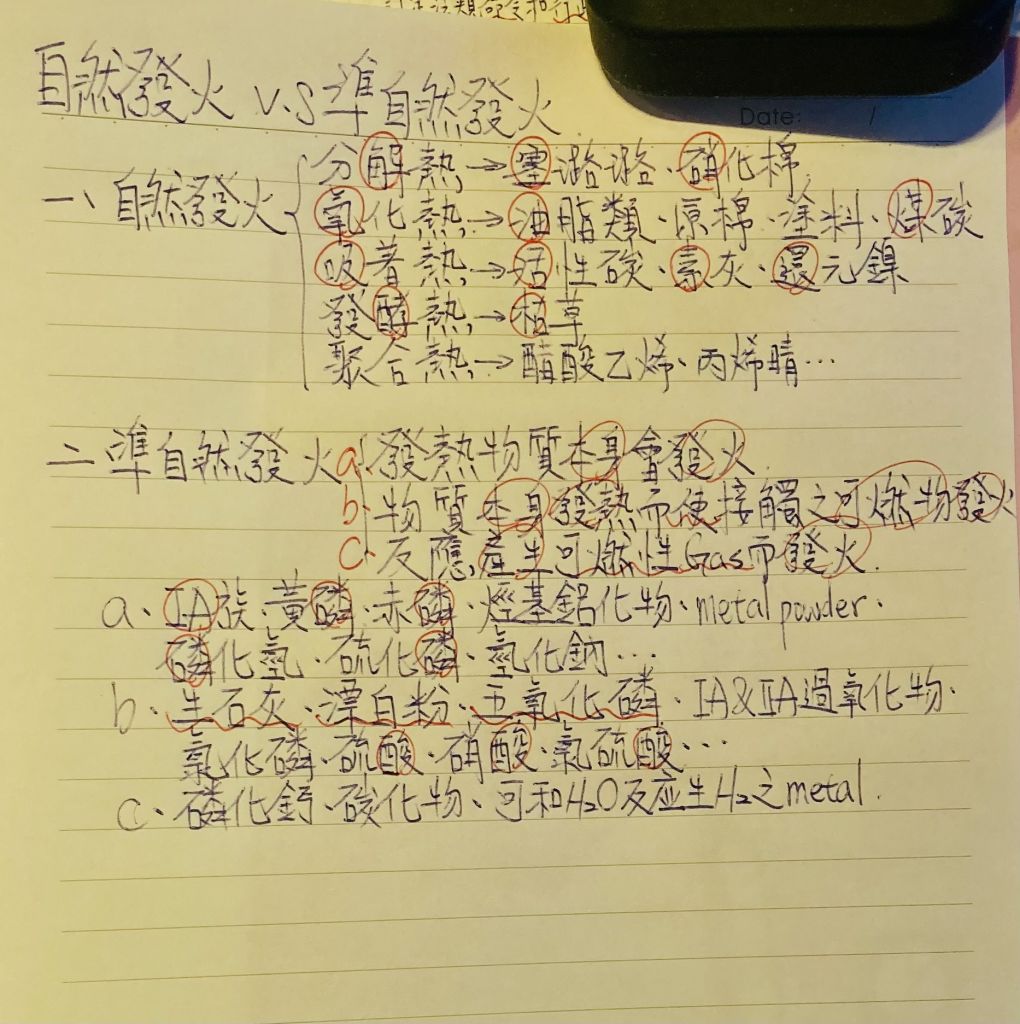 自然發火 V.S 準自然發火
一、自然發火
分解熱→塞璐璐、硝化棉
氧化熱→油脂類、原棉、塗料、煤碳
吸著熱→活性碳、素灰、還元鎳
發酵熱→枯草
聚合熱→醋酸乙烯、丙烯晴…
二準自然發火 a.發熱物質本身會發火
b.物質本身發熱而使接觸之可燃物發火
c.反應產生可燃性Gas而發火.
a、IA族、黃磷、赤磷、烴基鋁化物、metal powder、
磷化氫、硫化磷、氫化鈉…
b、生石灰、漂白粉、五氧化磷、IA&IIA過氧化物、
氯化磷、硫酸、硝酸、氯硫酸…
c、磷化鈣、碳化物、可和H₂O反应生H₂之metal.
Date: /